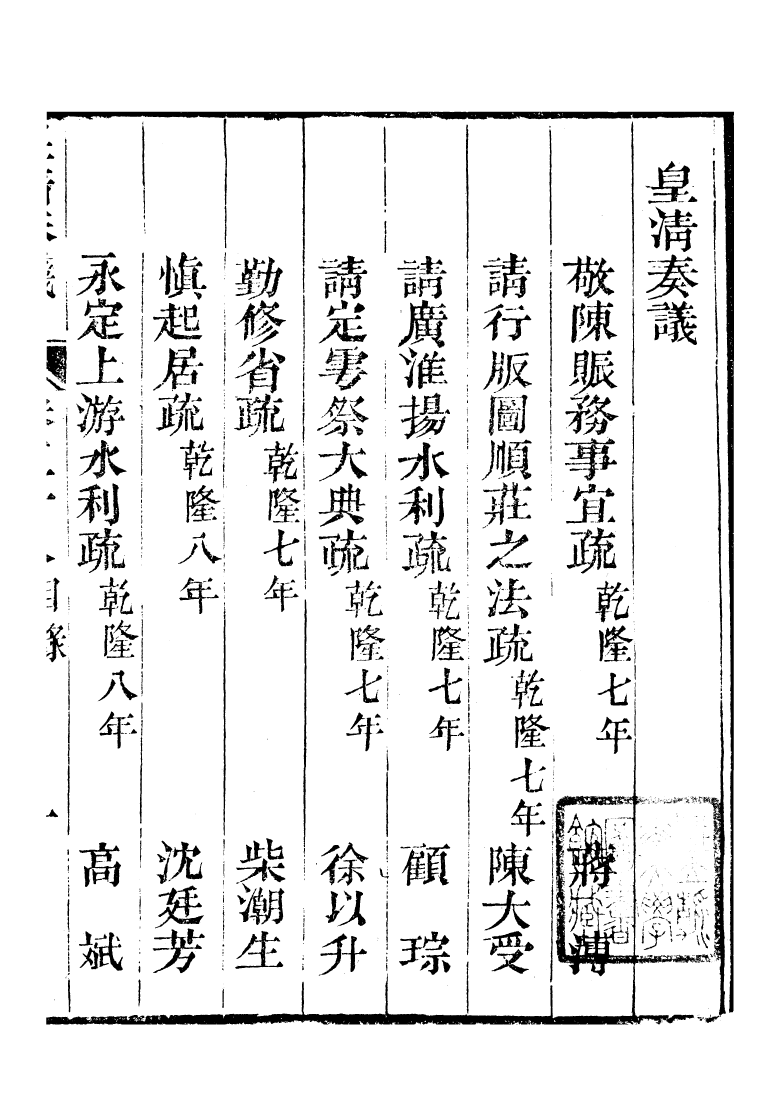 皇清奏議
敬陳賑務事宜疏 乾隆七年 蔣溥
請行版圖順莊之法疏 乾隆七年 陳大受
請廣淮揚水利疏 乾隆七年 顧琮
請定雩祭大典疏 乾隆七年 徐以升
勤修省疏 乾隆七年 柴潮生
慎起居疏 乾隆八年 沈廷芳
永定上游水利疏 乾隆八年 高斌
目錄